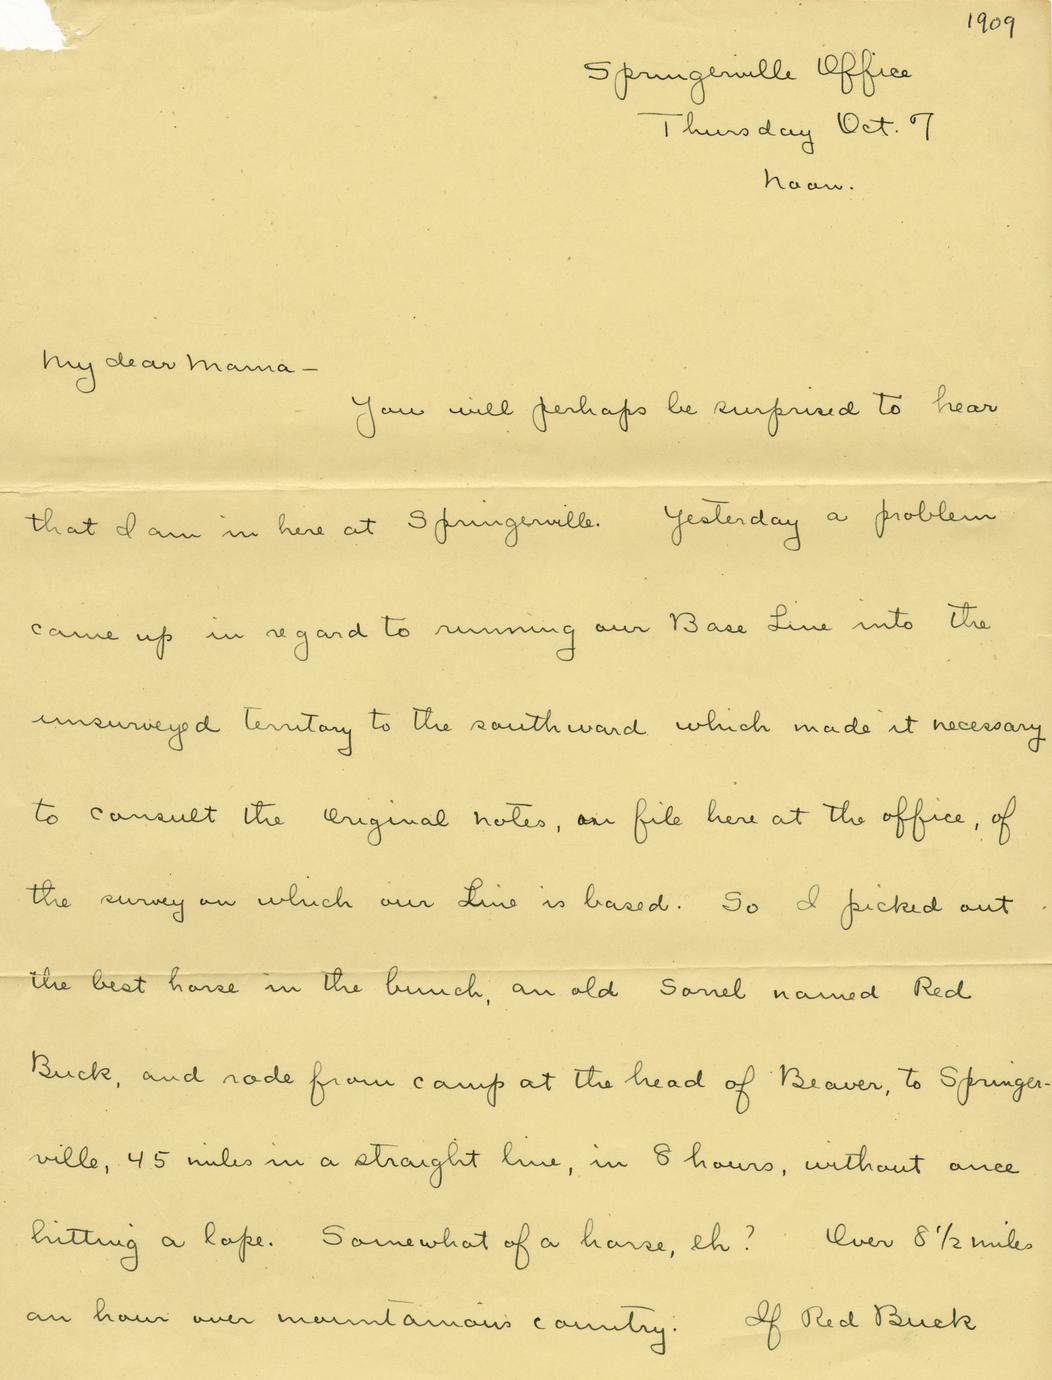 1909
Springerville Office
Thursday Oct. 7
Noon.
My dear Mama —
You will perhaps be surprised to hear
that I am in here at Springerville. Yesterday a problem
came up in regard to running our Base Line into the
unsurveyed territory to the southward which made it necessary
to consult the Original notes, on file here at the office, of
the survey on which our Line is based. So I picked out
the best horse in the bunch, an old Sorrel named Red
Buck, and rode from camp at the head of Beaver, to Springer-
ville, 45 miles in a straight line, in 8 hours, without once
hitting a lope. Somewhat of a horse, eh? Over 8 1/2 miles
an hour over mountainous country. If Red Buck